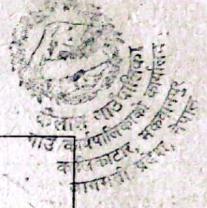 कैलाश गाउँपालिका
गाउँ कार्यपालिकाको कार्यालय
मकवानपुर
बागमती प्रदेश, नेपाल